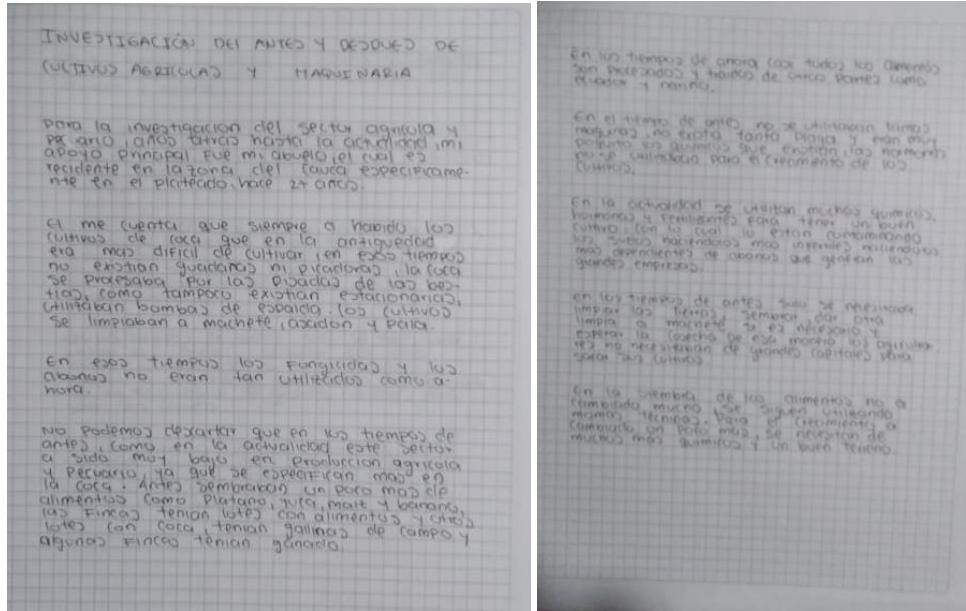 INVESTIGACIÓN DEL ANTES Y DESPUES DE
CULTIVOS AGRICOLAS Y MAQUINARIA
para la investigacion del sectur agricola y
pecuario, años tatras hasta la actualidad, mi
apoyo principal fue mi abuelo, el cual es
recidente en la zona del cauca especificame-
nte en el plateado, hace 24 años.
El me cuenta que siempre a habido los
cultivos de coca que en la antiguedad
era mas dificil de cultivar, en esos tiempos
no existian guadañas ni picadoras, la coca
se procesaba por las pisadas de las bes-
tias, como tampoco existian estacionarias,
utilizaban bombas de espalda. los cultivos
se limpiaban a machete, asadon y pala.
En esos tiempos los fungicidas y los
abonos no eran tan utilizados como a-
hora.
No podemos descartar que en los tiempos de
antes, como en la actualidad este sector
a sido muy bajo en produccion agricola
y pecuario, ya que se especifican mas en
la coca. Antes sembraban un poco mas de
alimentos como platano, yuca, maiz y banano,
las fincas tenian lotes con alimentos y otros
lotes con coca, tenian gallinas de campo y
algunas fincas tenian ganado.
En los tiempos de ahora casi todos los alimentos
son procesados y traidos de otras partes como
ecuador y nariño.
En el tiempo de antes no se utilizaban tantas
maquinas, no exotia tanta plaga y eran muy
los quimicos que existian, las hormonas
no se utilizaban para el crecimiento de los
cultivos.
En la actualidad se utilizan muchos quimicos,
hormonas y fertilizantes para tener un buen
cultivo, con lo cual lo estan contaminando
los suelos haciendolos mas infertiles haciendolos
mas dependientes de abonos que generan las
grandes empresas.
en los tiempos de antes solo se necesitaba
limpiar las tierras, sembrar dar otra
limpia a machete si es necesario y
esperar la cosecha de esa manera los agriculto-
res no necesitaban de grandes capitales para
sacar sus cultivos.
En la siembra de los alimentos no a
cambiado mucho, se siguen utilizando
mismas tecnicas. Para el crecimiento a
cambiado un poco mas, se necesitan de
muchos mas quimicos y un buen terreno.